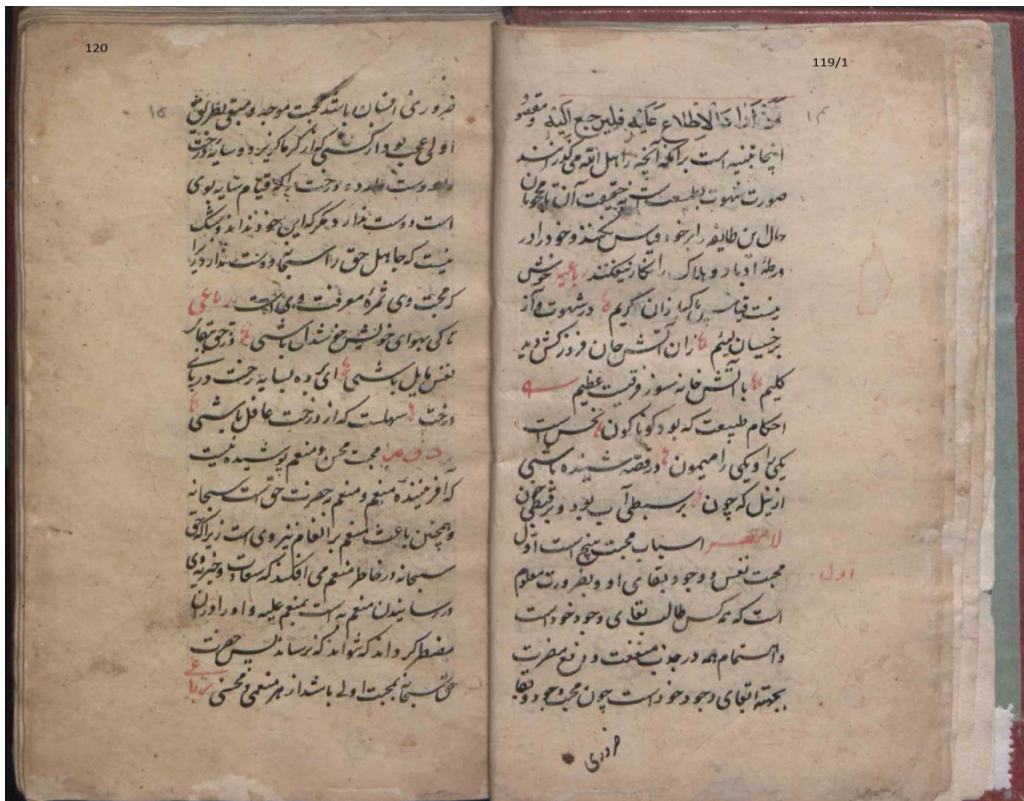 119/1
۱۴
من اراد الاطلاع علیه فلیرجع الیه و مقصود
اینجا تنبیه است بر آنکه آنچه را اهل الله می گذرانند
صورت شهوت طبیعت نه حقیقت آن تا محجوبان
حال این طایفه را بر خود قیاس نکنند و خود را در
ورطهٔ ادبار و هلاک نیفکنند رباعیه خوش
نیست قیاس پاکبازان کریم در شهوت و آز
بر خسیسان لئیم زان آتش جان فروز کش دید
کلیم با آتش خانه سوز فرقیست عظیم
احکام طبیعت که بود کوناکون نحس است
یکی را و یکی را میمون در قصه شنیده باشی
از نیل که چون بر سبطی آب بود و بر قبطی خون
اسباب محبت پنج است اول
محبت نفس و وجود و بقای او و بضرورت معلوم
اول
است که همه کس طالب بقای وجود خود است
و اهتمام همه در جذب منفعت و دفع مضرت
بجهته ابقای وجود خود است چون محبت وجود و بقا
ضروری
120
۱۵
ضروری انسان باشد محبت موجد و مبقی بطریق
اولی عجب بود از کسی که از گرما گریزد و سایه درخت
را دوست دارد و درخت را که قیام سایه بوی
است دوست ندارد مگر که این خود نداند و شک
نیست که جاهل حق را سبحانه دوست ندارد زیرا
که محبت وی ثمرهٔ معرفت وی است رباعی
تا کی بهوای خویش خوشدل باشی وز حق ببقای
نفس مایل باشی ای برده بسایه رخت در پای
درخت سهلست که از درخت غافل باشی
محبت محسن و منعم پوشیده نیست
که آفرینندهٔ منعم و منعم به حضرت حق است سبحانه
و همچنین باعث منعم بر انعام نیز وی است زیرا که حق
سبحانه در خاطر منعم می افکند که سعادت و خیر وی
در رسانیدن منعم به است بمنعم علیه و او را در آن
مضطر گرداند که نتواند که نرساند پس حضرت
حق سبحانه بمحبت اولی باشد از هر منعمی و محسنی رباعی